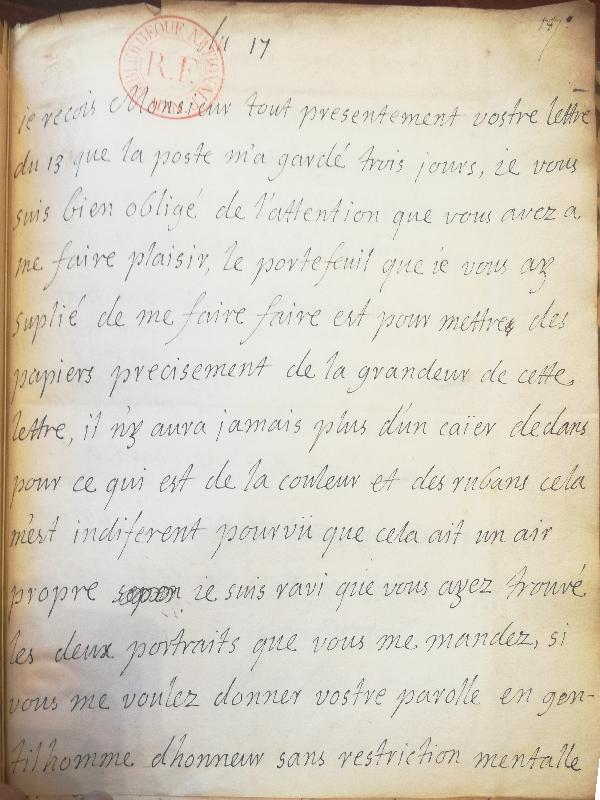 17
BIBLIOTHEQUE NATIONALE
R.F.
ie recois Monsieur tout presentement vostre lettre
du 13 que la poste m'a gardé trois jours, ie vous
suis bien obligé de l'attention que vous avez a
me faire plaisir, le portefeuil que ie vous ay
suplié de me faire faire est pour mettre des
papiers precisement de la grandeur de cette
lettre, il n'y aura jamais plus d'un caïer dedans
pour ce qui est de la couleur et des rubans cela
m'est indiferent pourvü que cela ait un air
propre ie suis ravi que vous ayez trouvé
les deux portraits que vous me mandez, si
vous me voulez donner vostre parolle en gen-
tilhomme d'honneur sans restriction mentalle